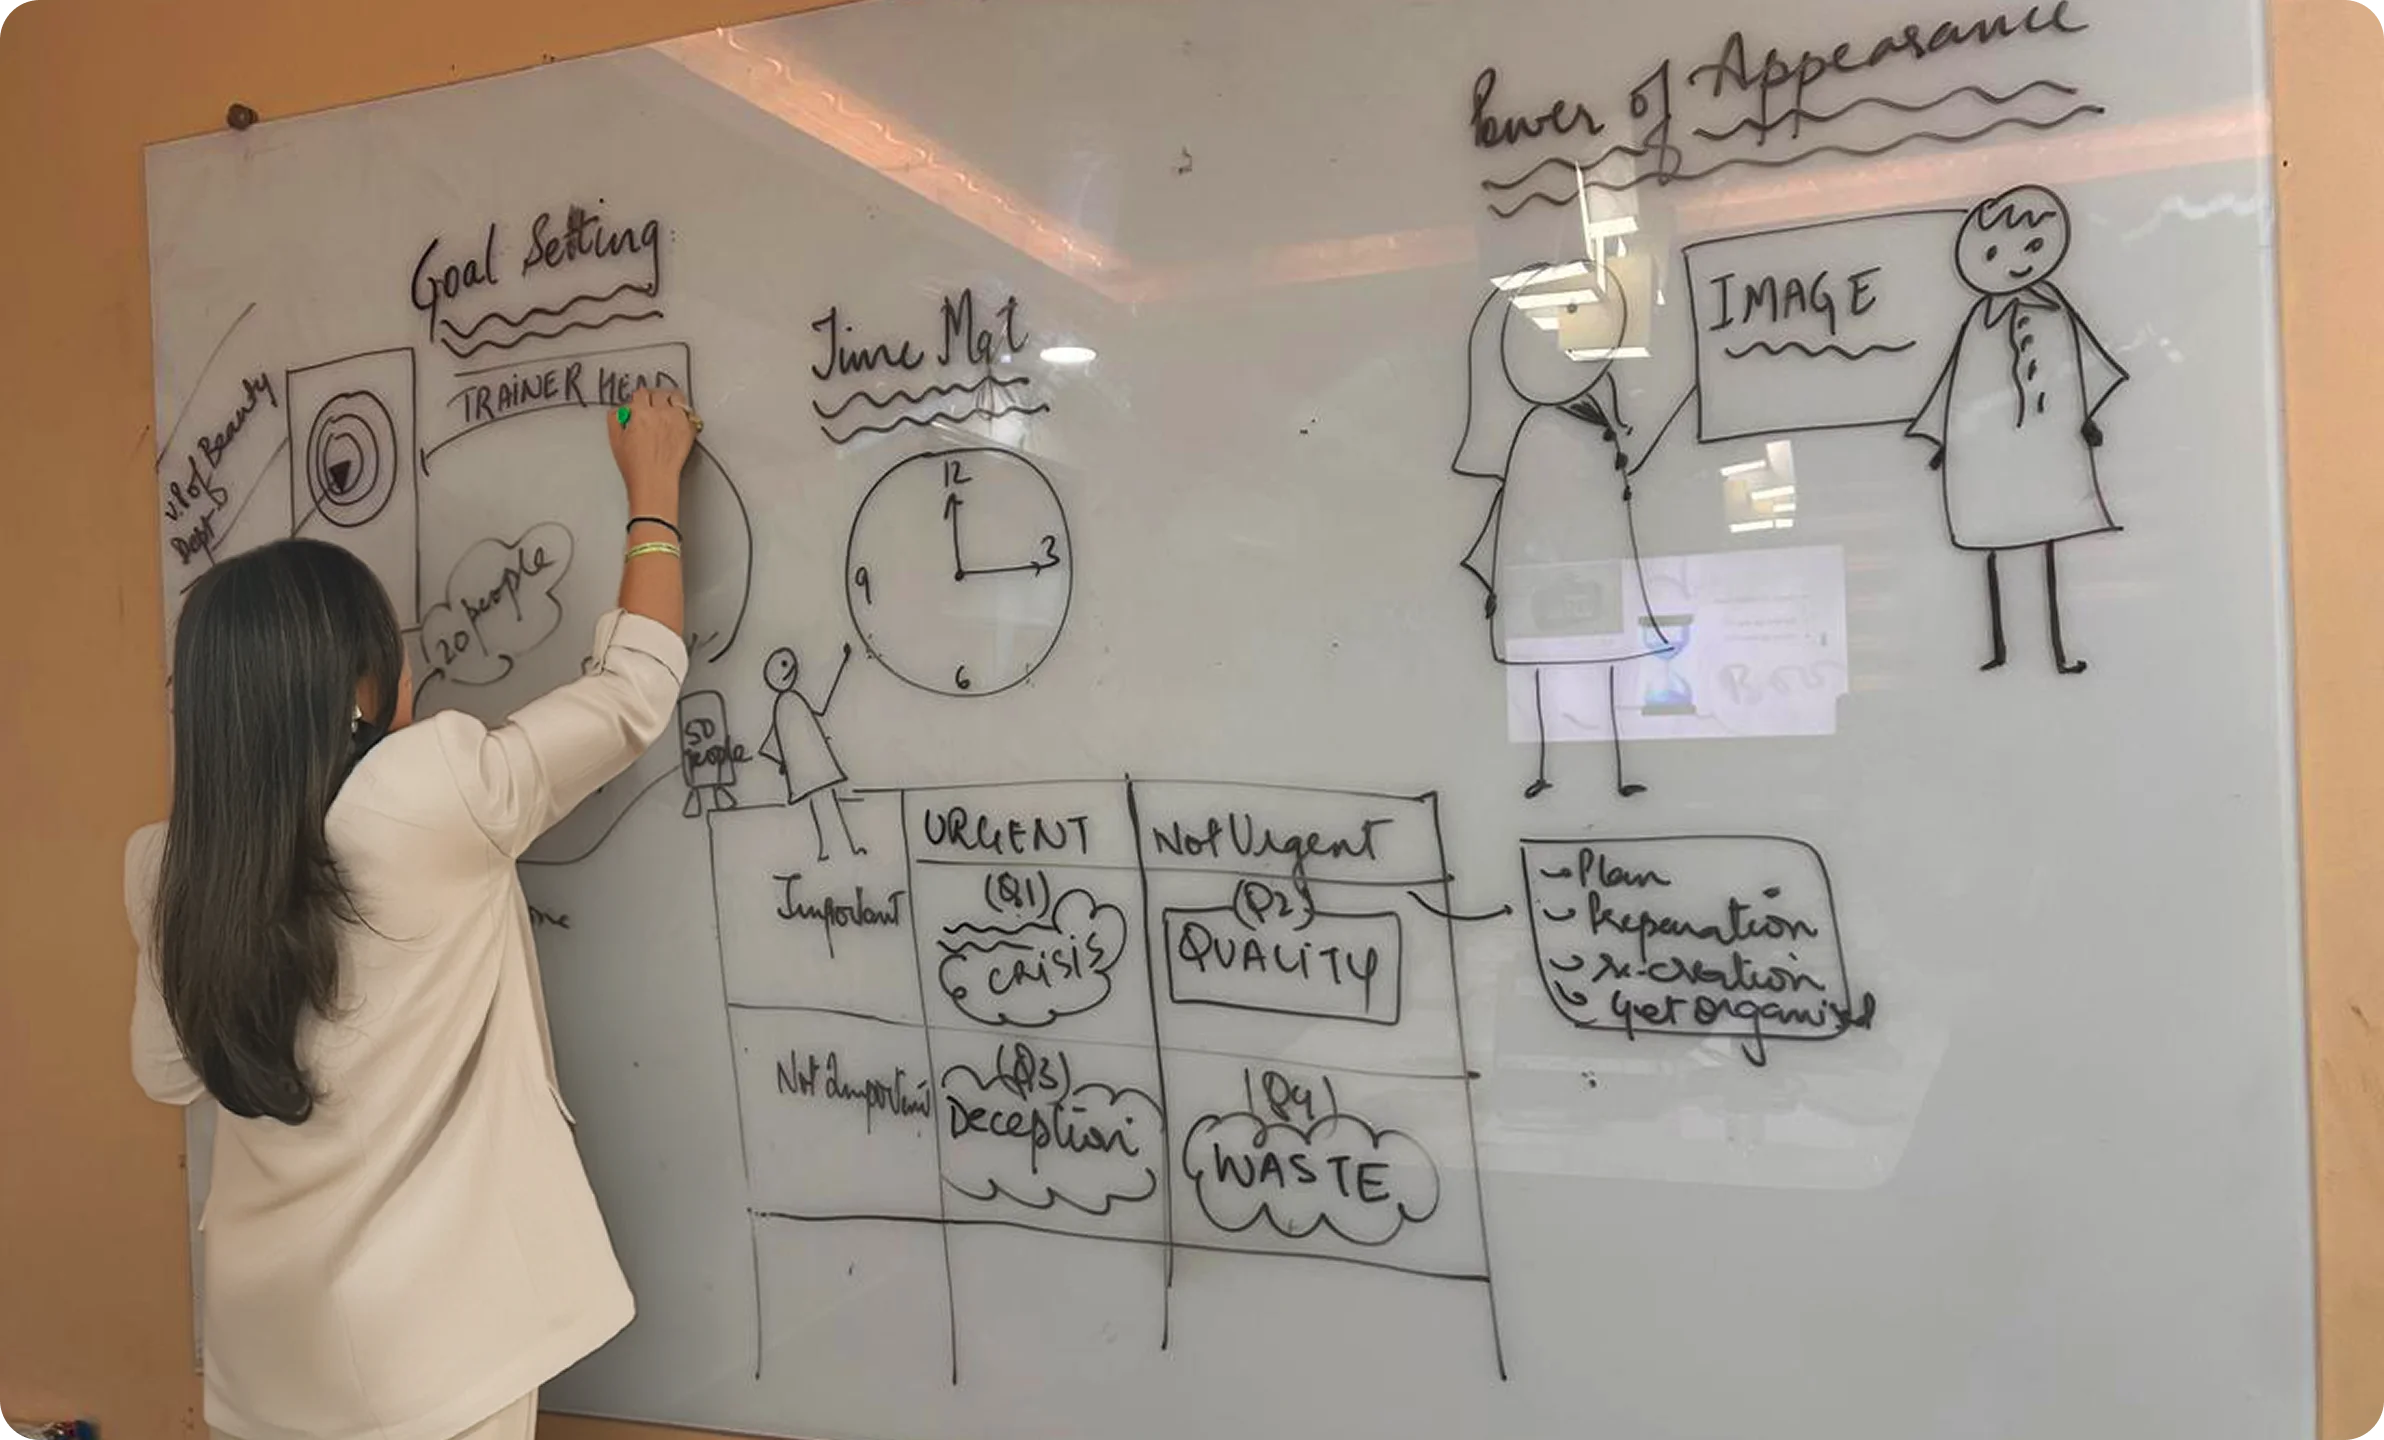 Power of Appearance
IMAGE
Goal Setting
TRAINER HEAD
V.P of Beauty
Dept
20 people
50
people
Time Mgt
12
3
6
9
URGENT
Not Urgent
Important
(Q1)
CRISIS
(Q2)
QUALITY
Not Important
(Q3)
Deception
(Q4)
WASTE
Plan
Preparation
re-creation
Get organized